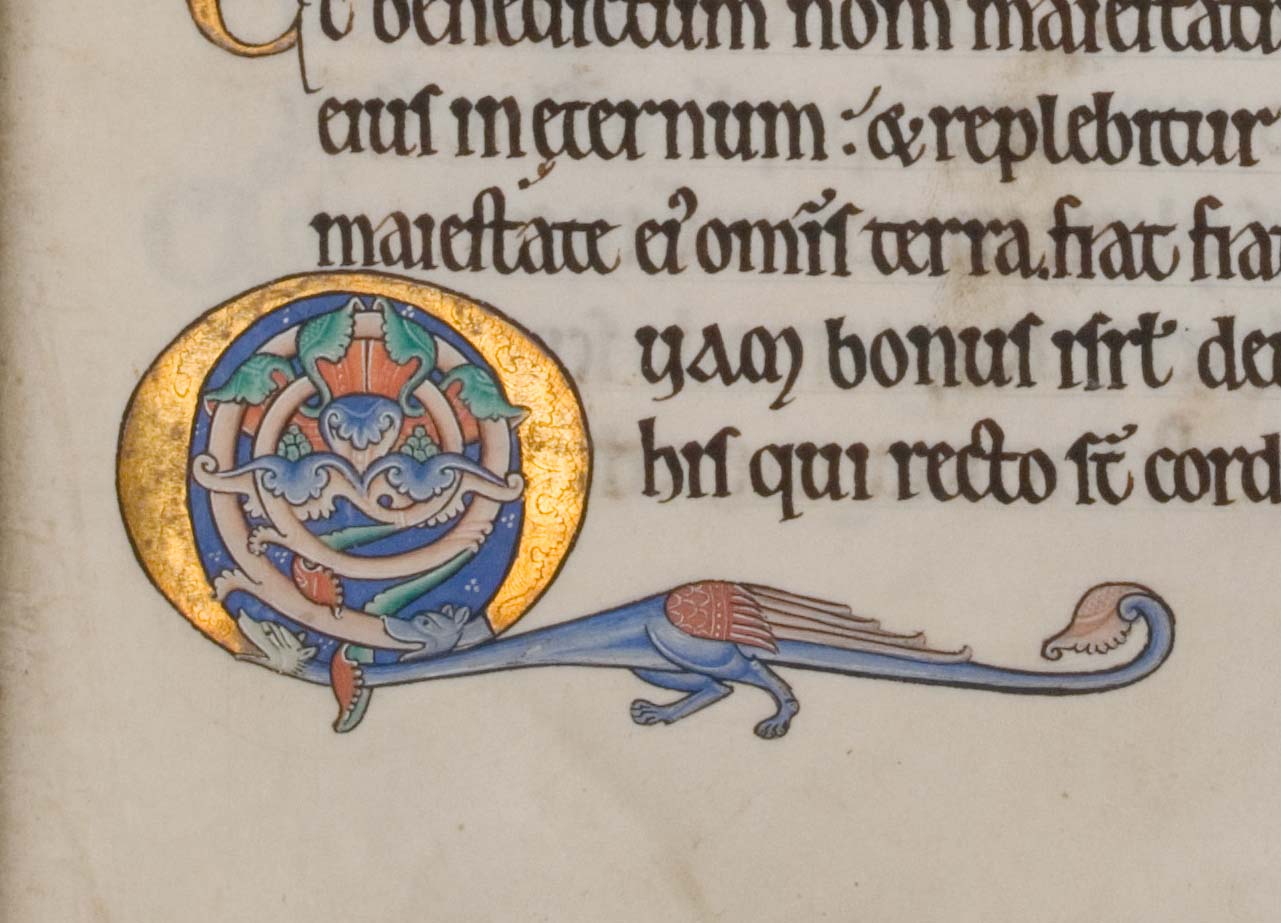 Et benedictum nom̄ maiestatis
eius in ęternum : & replebitur
maiestate ei᾽ om̄is terra. fiat fiat
Quam bonus isrł deu
his qui recto st̄ cord